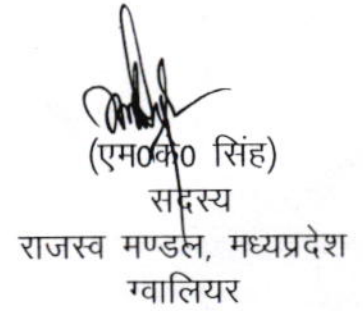 (एम0के0 सिंह)
सदस्य
राजस्व मण्डल, मध्यप्रदेश
ग्वालियर